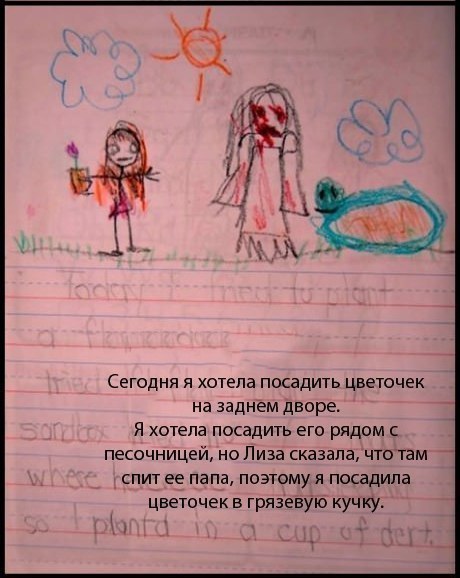 Today I tried to plant
a
tried
Сегодня я хотела посадить цветочек
на заднем дворе.
Я хотела посадить его рядом с
песочницей, но Лиза сказала, что там
спит ее папа, поэтому я посадила
цветочек в грязевую кучку.
sandbox
where
so I plantd in a cup of dert.